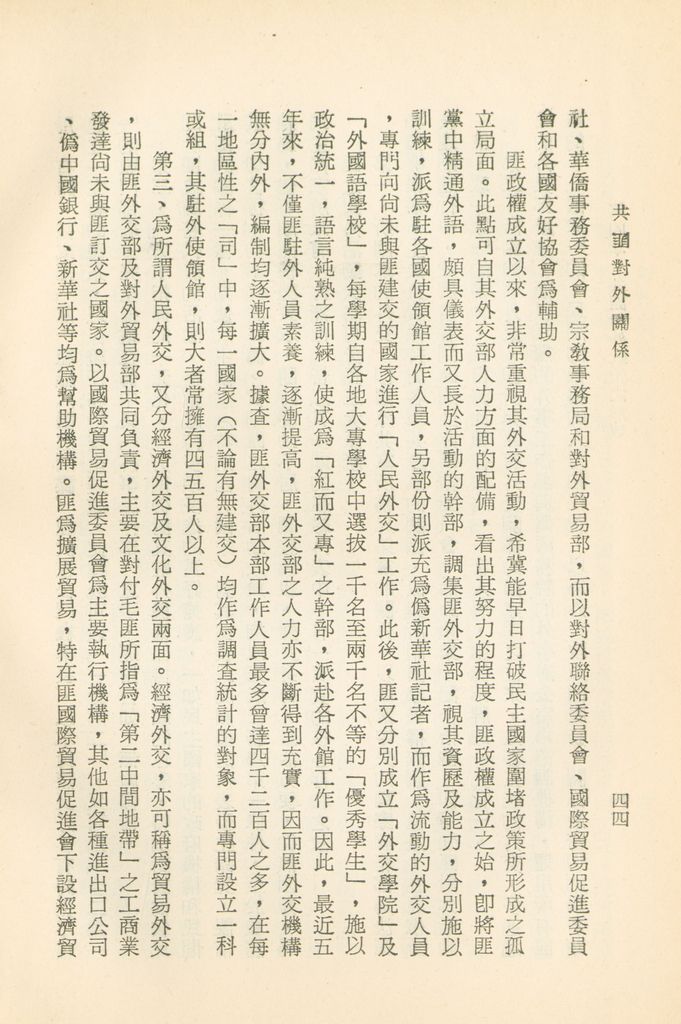 共匪對外關係
四四
社、華僑事務委員會、宗教事務局和對外貿易部，而以對外聯絡委員會、國際貿易促進委員
會和各國友好協會爲輔助。
匪政權成立以來，非常重視其外交活動，希冀能早日打破民主國家圍堵政策所形成之孤
立局面。此點可自其外交部人力方面的配備，看出其努力的程度，匪政權成立之始，卽將匪
黨中精通外語，頗具儀表而又長於活動的幹部，調集匪外交部，視其資歷及能力，分別施以
訓練，派爲駐各國使領館工作人員，另部份則派充爲僞新華社記者，而作爲流動的外交人員
，專門向尙未與匪建交的國家進行「人民外交」工作。此後，匪又分別成立「外交學院」及
「外國語學校」，每學期自各地大專學校中選拔一千名至兩千名不等的「優秀學生」，施以
政治統一，語言純熟之訓練，使成爲「紅而又專」之幹部，派赴各外館工作。因此，最近五
年來，不僅匪駐外人員素養，逐漸提高，匪外交部之人力亦不斷得到充實，因而匪外交機構
無分內外，編制均逐漸擴大。據查，匪外交部本部工作人員最多曾達四千二百人之多，在每
一地區性之「司」中，每一國家（不論有無建交）均作爲調查統計的對象，而專門設立一科
或組，其駐外使領館，則大者常擁有四五百人以上。
第三、爲所謂人民外交，又分經濟外交及文化外交兩面。經濟外交，亦可稱爲貿易外交
，則由匪外交部及對外貿易部共同負責，主要在對付毛匪所指爲「第二中間地帶」之工商業
發達尙未與匪訂交之國家。以國際貿易促進委員會爲主要執行機構，其他如各種進出口公司
、僞中國銀行、新華社等均爲幫助機構。匪爲擴展貿易，特在匪國際貿易促進會下設經濟貿